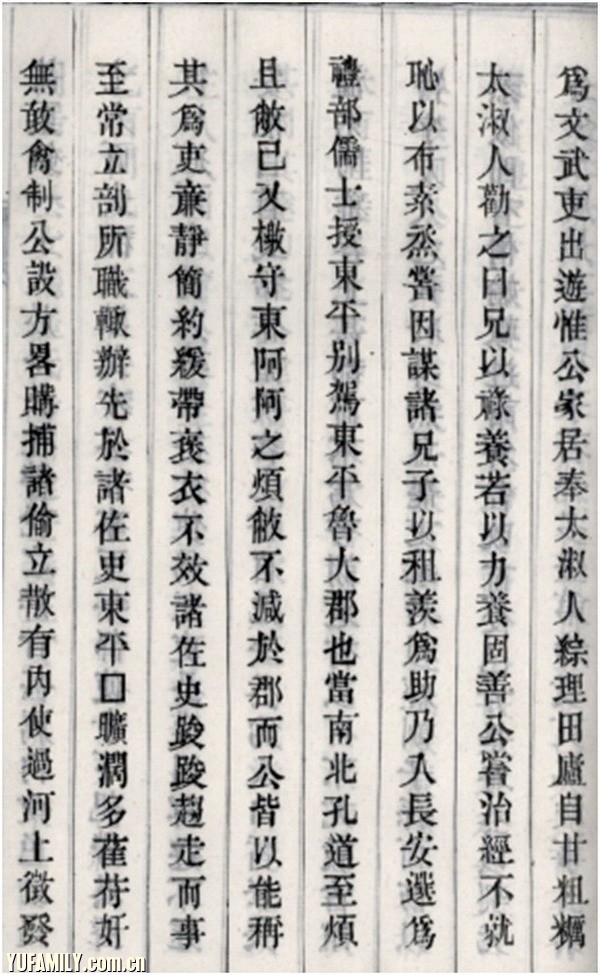 爲文武吏出遊惟公家居奉太淑人綜理田廬自甘粗糲
太淑人勸之曰兄以祿養若以力養固善公嘗治經不就
恥以布素烝嘗因謀諸兄子以租羨爲助乃入長安選爲
禮部儒士授東平别駕東平魯大郡也當南北孔道至煩
且敝已又檄守東阿阿之煩敝不減於郡而公皆以能稱
其爲吏亷靜簡約緩帶裒衣不效諸佐史踆踆趨走而事
至常立剖所職輙辦先於諸佐史東平□曠濶多萑苻奸
無敢禽制公設方畧購捕諸偷立散有内使過河上徵發
YUFAMILY.com.cn